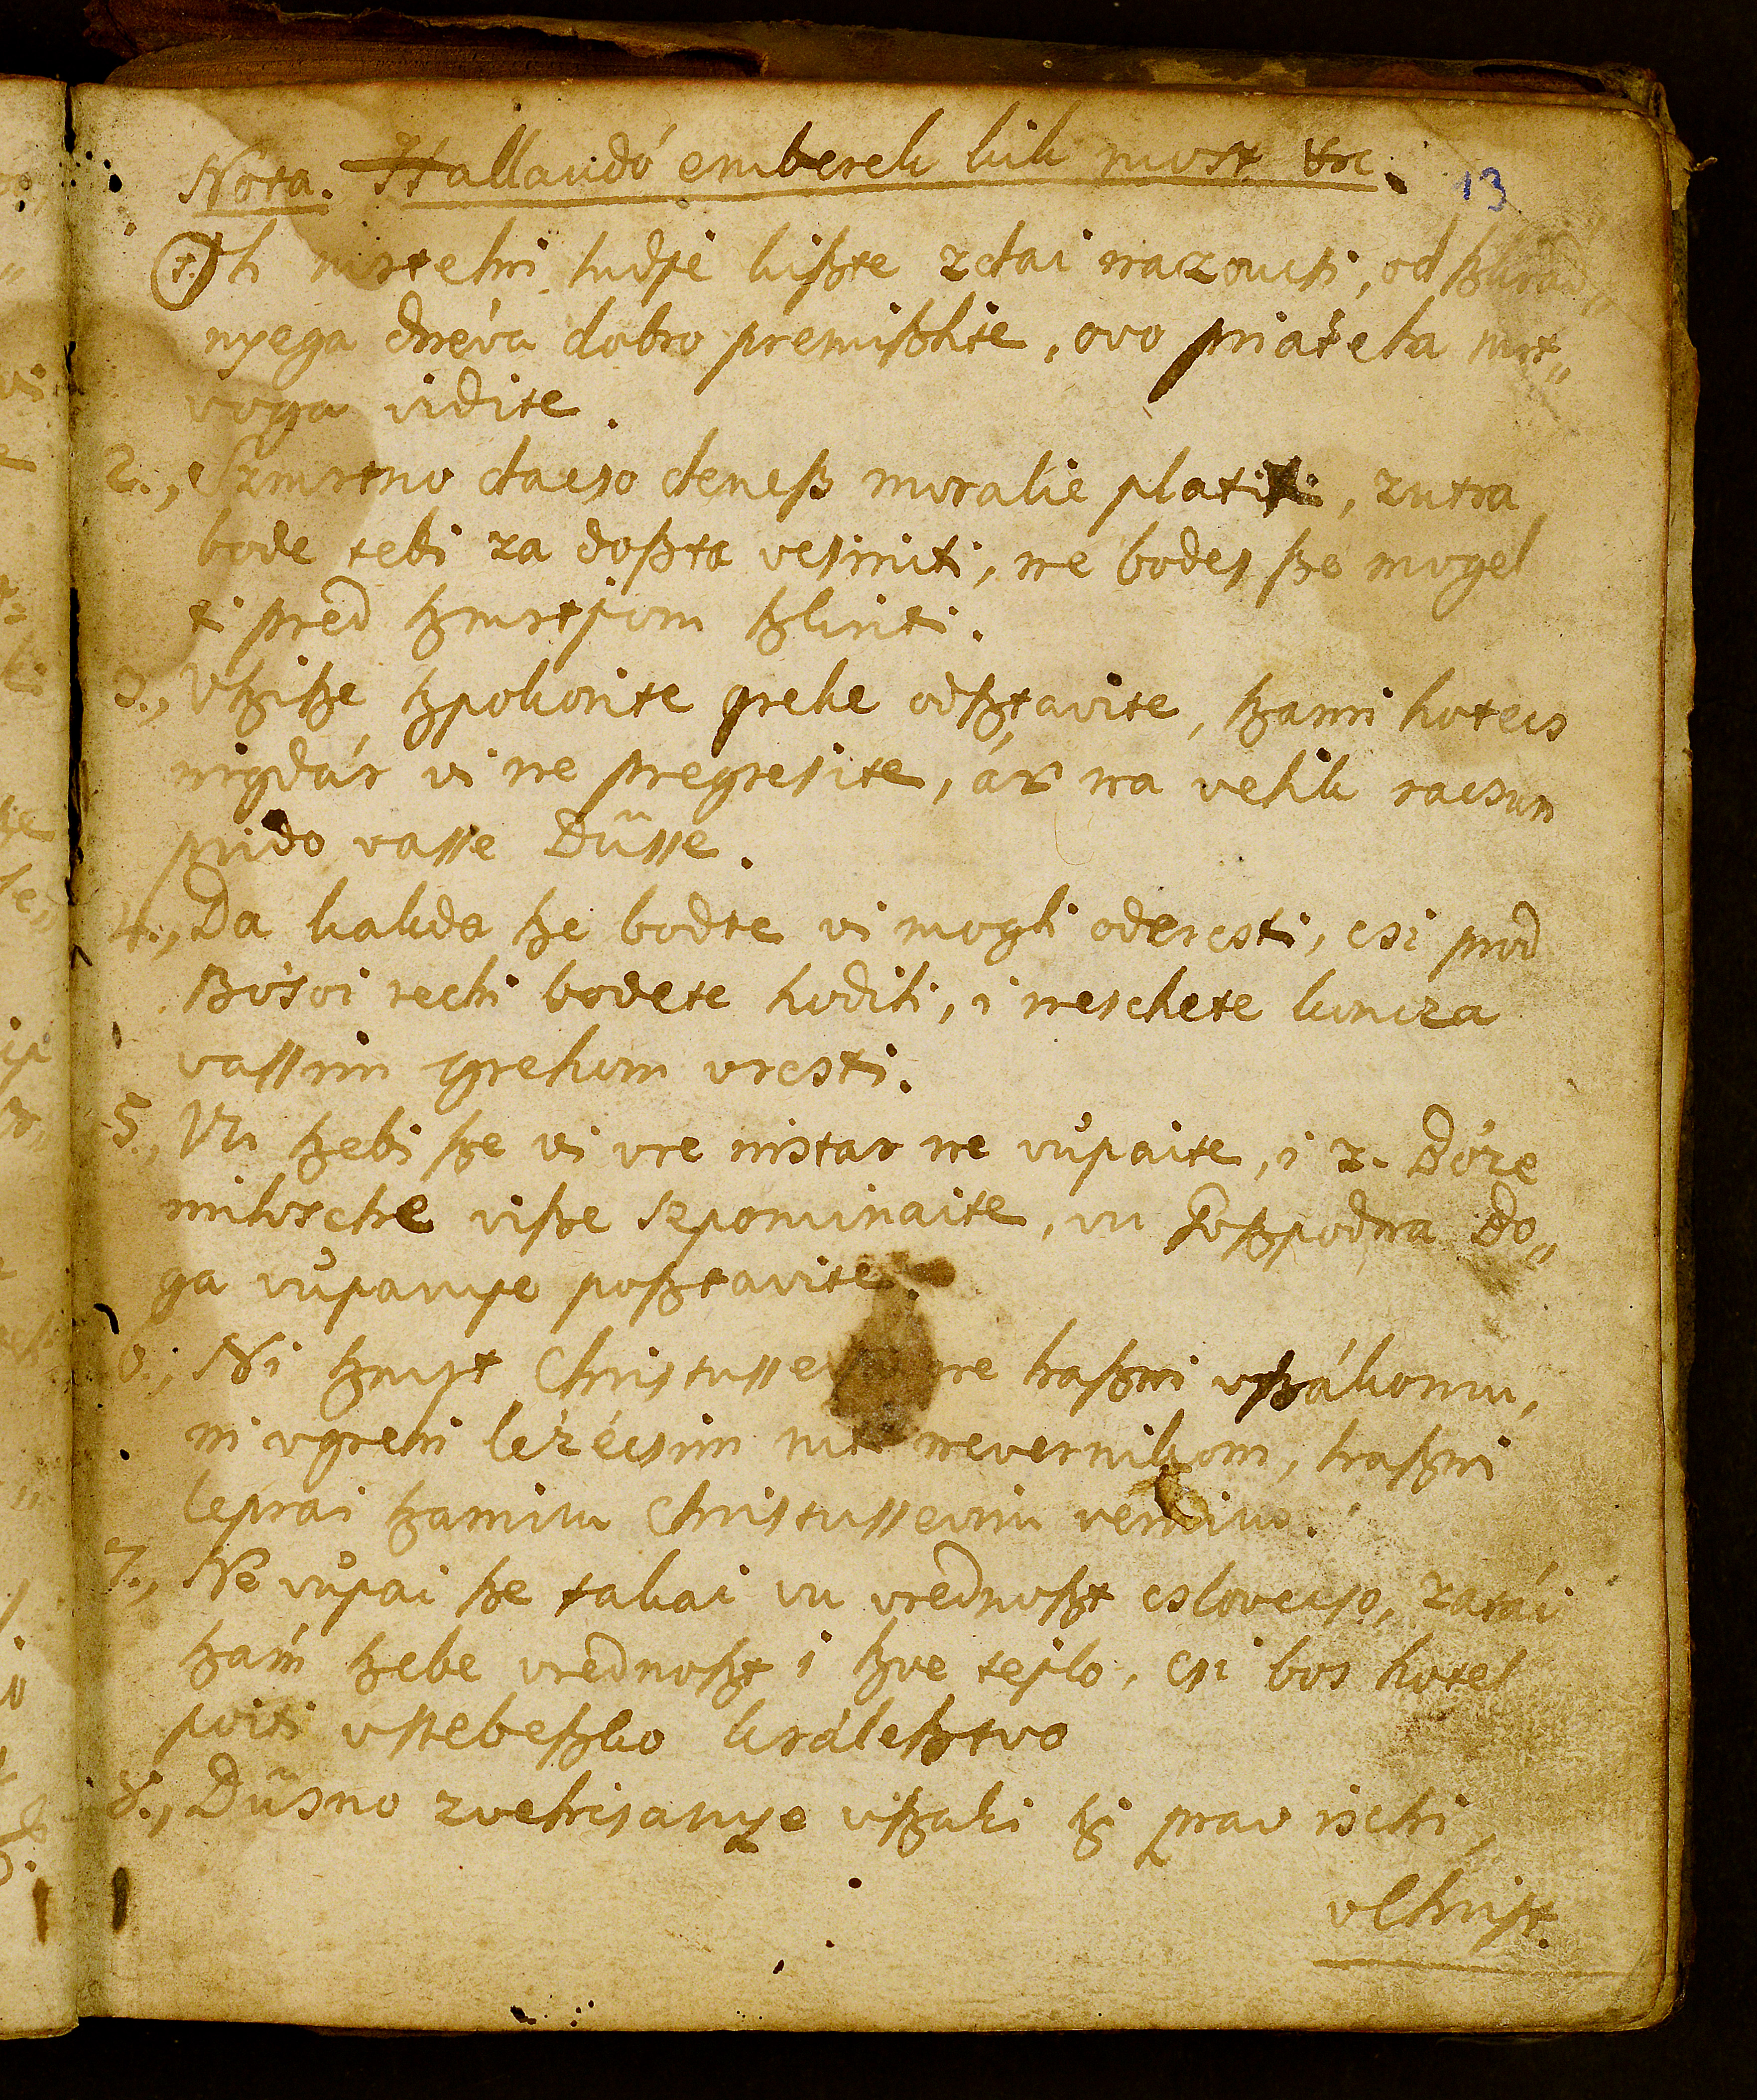 Nota. Hallandó emberek kik most etc. 13
1. Oh mrtelni ludje kißte zdai nazoucsi, od ßkrad„
nyega dnéva dobro premißlite, ovo priátela mrt„
voga vidite.
2., Szmrtno dacso deneß moralie platiti, zutra
bode tebi za doßta vesiniti, ne bodes ße mogel
ti pred ßmrtjom ßkriti.
3., Vßiße ßpokorite grehe odßtavite, ßami hotecs
nigdár vi ne pregresite, ár na velik racsun
prido vasse Düsse.
4., Da kakda ße bodte vi mogli odercsti, csi prod
Bósoi rechi bodete hodili, i neschete koncza
vassim grehom vrcsti.
5., Vu ßebi ße vi vre nistar ne vüpaite, i z. Bóze
milosche viße szpominaite, vu Goßpodna Bo„
ga vüpanye poßtavite.
6., Ni ßmrt Christusseva ne haßni vßákomu,
ni vgrehi lezécsim niti nevernikom, haßni
leprai ßamim Christussevim vernim.
7., Ne vüpai ße takai vu vrednoßt cslovecso, zatái
ßám ßebe vrednoßt i ßve tejlo, csi bos hotel
poiti vnebeßko králeßtvo
8., Düsno zvelicsanye vßaki ßi prav ischi,
vChrißt.